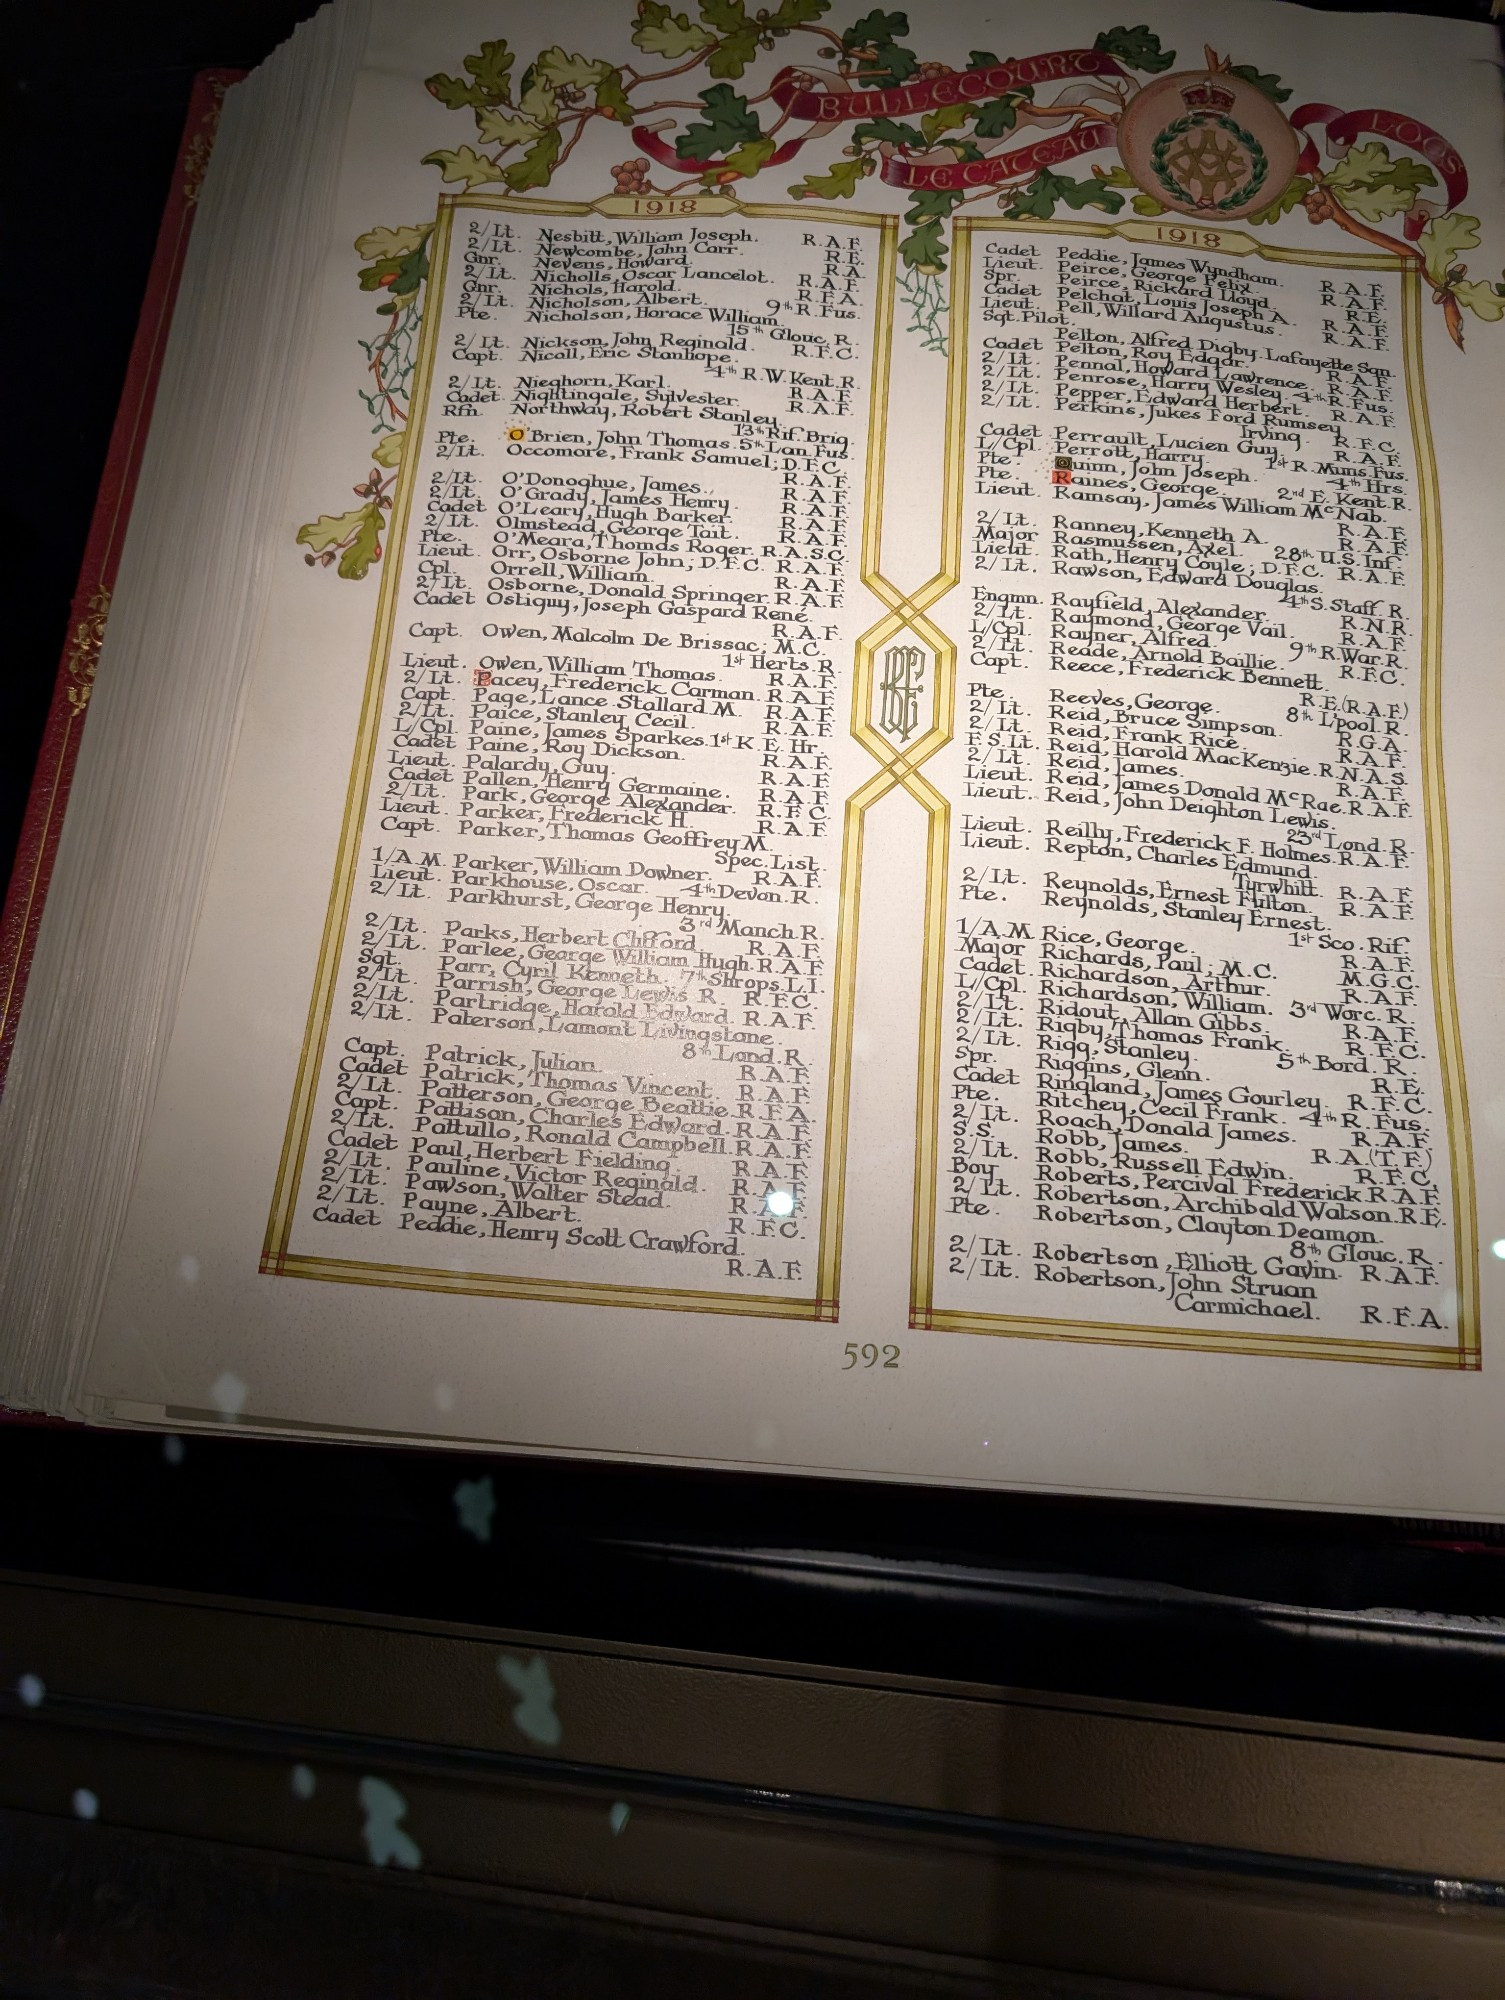 BULLECOURT
LE CATEAU
LOOS
1918
2/Lt. Nesbitt, William Joseph. R.A.F.
2/Lt. Newcombe, John Carr. R.E.
Gnr. Nevens, Howard. R.A.
2/Lt. Nicholls, Oscar Lancelot. R.A.F.
Gnr. Nichols, Harold. R.F.A.
2/Lt. Nicholson, Albert. 9th R.Fus.
Pte. Nicholson, Horace William.
15th Glouc. R.
2/Lt. Nickson, John Reginald. R.F.C.
Capt. Nicoll, Eric Stanhope.
4th R.W.Kent.R.
2/Lt. Nieghorn, Karl. R.A.F.
Cadet Nightingale, Sylvester. R.A.F.
Rfn. Northway, Robert Stanley.
13th Rif. Brig.
Pte. O'Brien, John Thomas. 5th Lan. Fus.
2/Lt. Occomore, Frank Samuel; D.F.C.
R.A.F.
2/Lt. O'Donoghue, James. R.A.F.
2/Lt. O'Grady, James Henry. R.A.F.
Cadet O'Leary, Hugh Barker. R.A.F.
2/Lt. Olmstead, George Tait. R.A.F.
Pte. O'Meara, Thomas Roger. R.A.S.C.
Lieut. Orr, Osborne John; D.F.C. R.A.F.
Cpl. Orrell, William. R.A.F.
2/Lt. Osborne, Donald Springer. R.A.F.
Cadet Ostiguy, Joseph Gaspard René.
R.A.F.
Capt. Owen, Malcolm De Brissac; M.C.
1st Herts. R.
Lieut. Owen, William Thomas. R.A.F.
2/Lt. Pacey, Frederick Carman. R.A.F.
Capt. Page, Lance Stallard M. R.A.F.
2/Lt. Paice, Stanley Cecil. R.A.F.
L/Cpl. Paine, James Sparkes. 1st K. E. Hr.
Cadet Paine, Roy Dickson. R.A.F.
Lieut. Palardy, Guy. R.A.F.
Cadet Pallen, Henry Germaine. R.A.F.
2/Lt. Park, George Alexander. R.F.C.
Lieut. Parker, Frederick H. R.A.F.
Capt. Parker, Thomas Geoffrey M.
Spec. List.
1/A.M. Parker, William Downer. R.A.F.
Lieut. Parkhouse, Oscar. 4th Devon. R.
2/Lt. Parkhurst, George Henry.
3rd Manch. R.
2/Lt. Parks, Herbert Clifford. R.A.F.
2/Lt. Parlee, George William Hugh. R.A.F.
Sgt. Parr, Cyril Kenneth. 7th Shrops. L.I.
2/Lt. Parrish, George Lewis R. R.F.C.
2/Lt. Partridge, Harold Edward. R.A.F.
2/Lt. Paterson, Lamont Livingstone.
8th Lond. R.
Capt. Patrick, Julian. R.A.F.
Cadet Patrick, Thomas Vincent. R.A.F.
2/Lt. Patterson, George Beattie. R.F.A.
Capt. Pattison, Charles Edward. R.A.F.
2/Lt. Pattullo, Ronald Campbell. R.A.F.
Cadet Paul, Herbert Fielding. R.A.F.
2/Lt. Pauline, Victor Reginald. R.A.F.
2/Lt. Pawson, Walter Stead. R.A.F.
2/Lt. Payne, Albert. R.F.C.
Cadet Peddie, Henry Scott Crawford.
R.A.F.
BEF
1918
Cadet Peddie, James Wyndham. R.A.F.
Lieut. Peirce, George Felix. R.A.F.
Spr. Peirce, Rickard Lloyd. R.E.
Cadet Pelchat, Louis Joseph A. R.A.F.
Lieut. Pell, Willard Augustus. R.A.F.
Sgt. Pilot.
Pelton, Alfred Digby. Lafayette Sqn.
Cadet Pelton, Roy Edgar. R.A.F.
2/Lt. Pennal, Howard Lawrence. R.A.F.
2/Lt. Penrose, Harry Wesley. 4th R.Fus.
2/Lt. Pepper, Edward Herbert. R.A.F.
2/Lt. Perkins, Jukes Ford Rumsey
Irving. R.F.C.
Cadet Perrault, Lucien Guy. R.A.F.
L/Cpl. Perrott, Harry. 1st R. Muns. Fus.
Pte. Quinn, John Joseph. 4th Hrs.
Pte. Raines, George. 2nd E. Kent. R.
Lieut. Ramsay, James William McNab.
R.A.F.
2/Lt. Ranney, Kenneth A. R.A.F.
Major Rasmussen, Axel. 28th U.S. Inf.
Lieut. Rath, Henry Coyle; D.F.C. R.A.F.
2/Lt. Rawson, Edward Douglas.
4th S. Staff. R.
Engmn. Rayfield, Alexander. R.N.R.
2/Lt. Raymond, George Vail. R.A.F.
L/Cpl. Rayner, Alfred. 9th R. War. R.
2/Lt. Reade, Arnold Baillie. R.F.C.
Capt. Reece, Frederick Bennett.
R.E. (R.A.F.)
Pte. Reeves, George. 8th L'pool. R.
2/Lt. Reid, Bruce Simpson. R.G.A.
2/Lt. Reid, Frank Rice. R.A.F.
F.S.Lt. Reid, Harold MacKenzie. R.N.A.S.
2/Lt. Reid, James. R.A.F.
Lieut. Reid, James Donald McRae. R.A.F.
Lieut. Reid, John Deighton Lewis.
23rd Lond. R.
Lieut. Reilly, Frederick F. Holmes. R.A.F.
Lieut. Repton, Charles Edmund
Tyrwhitt. R.A.F.
2/Lt. Reynolds, Ernest Fulton. R.A.F.
Pte. Reynolds, Stanley Ernest.
1st Sco. Rif.
1/A.M. Rice, George. R.A.F.
Major Richards, Paul; M.C. M.G.C.
Cadet. Richardson, Arthur. R.A.F.
L/Cpl. Richardson, William. 3rd Worc. R.
2/Lt. Ridout, Allan Gibbs. R.A.F.
2/Lt. Rigby, Thomas Frank. R.F.C.
2/Lt. Rigg, Stanley. 5th Bord. R.
Spr. Riggins, Glenn. R.E.
Cadet Ringland, James Gourley. R.F.C.
Pte. Ritchey, Cecil Frank. 4th R. Fus.
2/Lt. Roach, Donald James. R.A.F.
S.S. Robb, James. R.A.(T.F.)
2/Lt. Robb, Russell Edwin. R.F.C.
Boy Roberts, Percival Frederick R.A.F.
2/Lt. Robertson, Archibald Watson. R.E.
Pte. Robertson, Clayton Deamon.
8th Glouc. R.
2/Lt. Robertson, Elliott Gavin. R.A.F.
2/Lt. Robertson, John Struan
Carmichael. R.F.A.
592